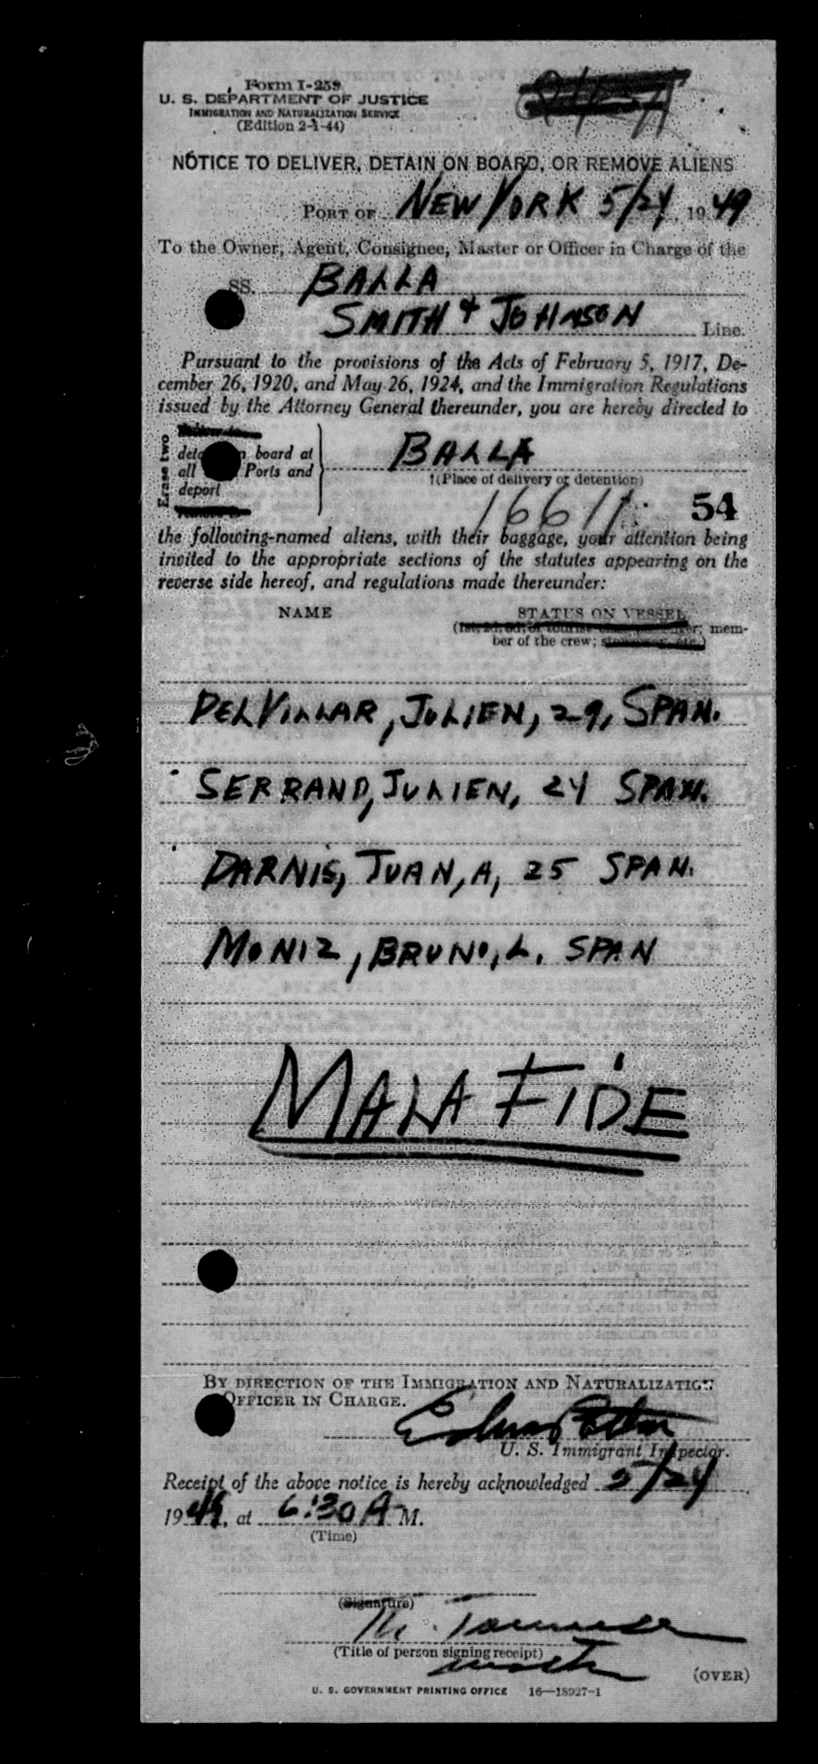 Form I-259
U. S. DEPARTMENT OF JUSTICE
IMMIGRATION AND NATURALIZATION SERVICE
(Edition 2-1-44)
NOTICE TO DELIVER, DETAIN ON BOARD, OR REMOVE ALIENS
PORT OF NEW YORK 5/24, 1949
To the Owner, Agent, Consignee, Master or Officer in Charge of the
SS. BALLA
SMITH & JOHNSON Line.
Pursuant to the provisions of the Acts of February 5, 1917, De-
cember 26, 1920, and May 26, 1924, and the Immigration Regulations
issued by the Attorney General thereunder, you are hereby directed to
Erase two
board at
all Ports and
deport
BALLA
†(Place of delivery or detention)
16611 54
the following-named aliens, with their baggage, your attention being
invited to the appropriate sections of the statutes appearing on the
reverse side hereof, and regulations made thereunder:
NAME STATUS ON VESSEL
mem-
ber of the crew;
DELVILLAR, JULIEN, 29, SPAN.
SERRAND, JULIEN, 24 SPAN.
DARNIS, JUAN, A, 25 SPAN.
MONIZ, BRUNO, L. SPAN
MALA FIDE
BY DIRECTION OF THE IMMIGRATION AND NATURALIZATION
OFFICER IN CHARGE.
U. S. Immigrant Inspector.
Receipt of the above notice is hereby acknowledged 5/24
1949, at 6:30 A M.
(Time)
(Signature)
(Title of person signing receipt)
(OVER)
U. S. GOVERNMENT PRINTING OFFICE 16—18927-1